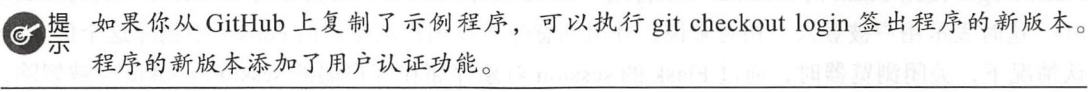 提示 如果你从 GitHub 上复制了示例程序，可以执行 git checkout login 签出程序的新版本。
程序的新版本添加了用户认证功能。